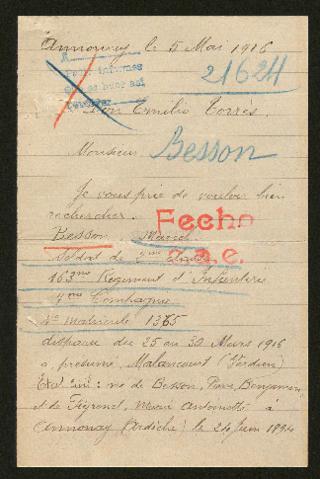 Annonay le 5 Mai 1916
21624
Don Emilio Torrès.
Monsieur
Besson
Je vous prie de vouloir bien
rechercher.
Fecho
Besson Marcel
Soldat de 2me Classe
163me Régiment d'Infanterie
7me Compagnie
No matricule 1365
disparu du 25 au 30 Mars 1916
présumé Malancourt (Verdun)
Etat Civil: né de Besson, Pierre Benjamin
et de Marie Antoinette à
Annonay (Ardèche) le 24 Juin 1894